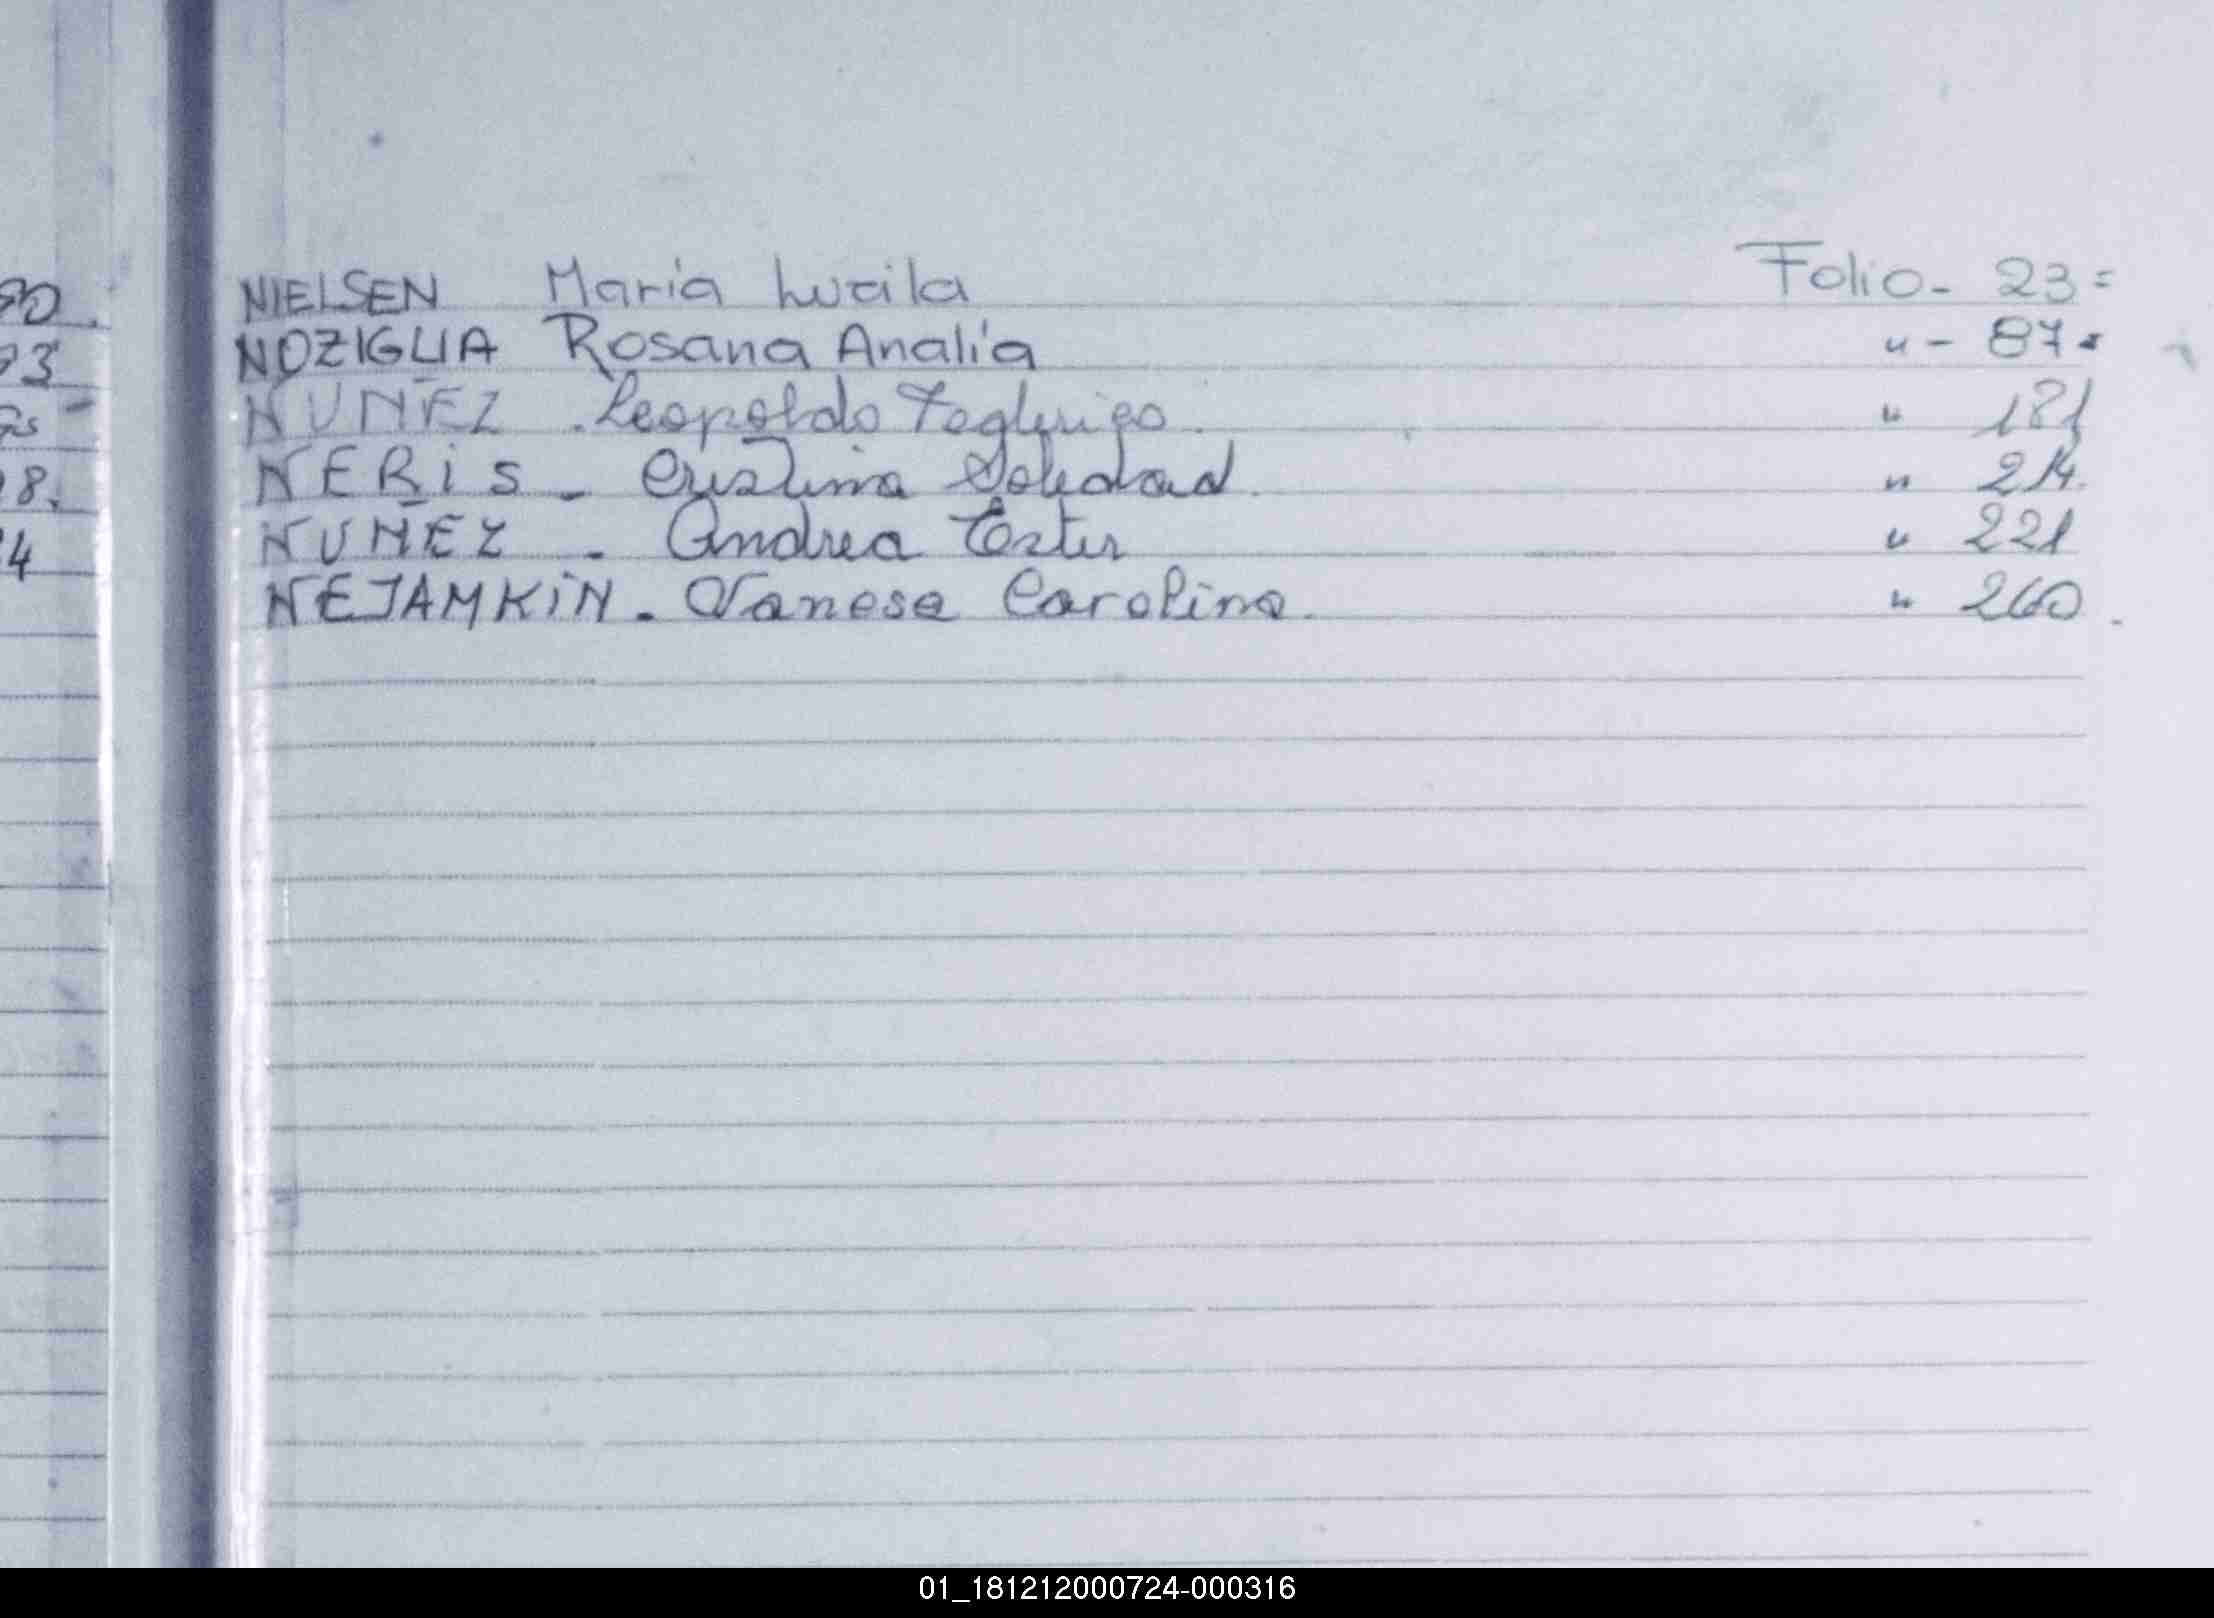 NIELSEN María Lucila Folio - 23 =
NOZIGLIA Rosana Analía " - 87 -
NUÑEZ . Leopoldo " 181
NERIS - Cristina Soledad " 214.
NUÑEZ - Andrea Ester " 221
NEJAMKIN - Vanesa Carolina " 260.
01_181212000724-000316